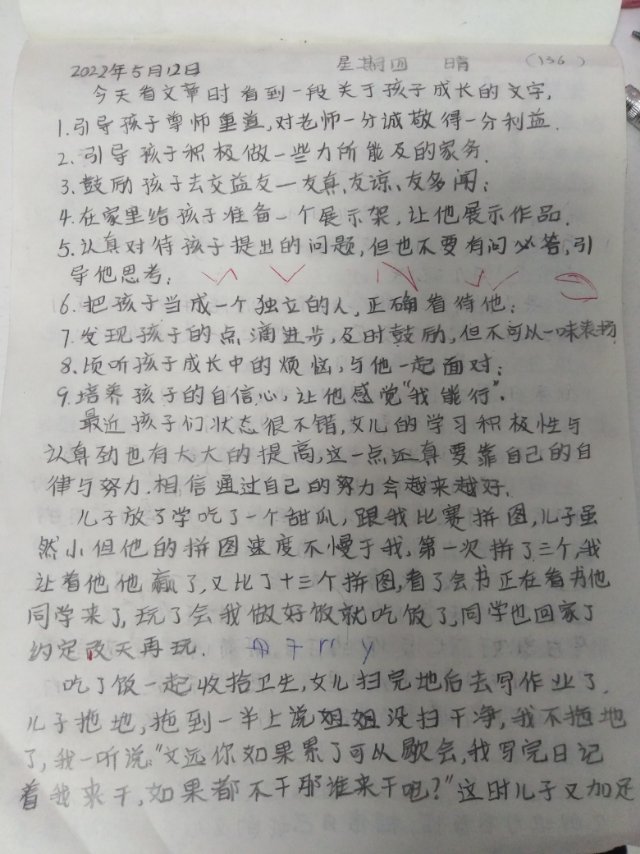 2022年5月12日 星期四 晴 (136)
今天看文章时看到一段关于孩子成长的文字,
1.引导孩子尊师重道,对老师一分诚敬得一分利益.
2.引导孩子积极做一些力所能及的家务.
3.鼓励孩子去交益友一友真,友谅、友多闻;
4.在家里给孩子准备一个展示架,让他展示作品.
5.认真对待孩子提出的问题,但也不要有问必答,引
导他思考;
6.把孩子当成一个独立的人,正确看待他;
7.发现孩子的点滴进步,及时鼓励,但不可以一味表扬
8.倾听孩子成长中的烦恼,与他一起面对;
9.培养孩子的自信心,让他感觉"我能行".
最近孩子们状态很不错,女儿的学习积极性与
认真劲也有大大的提高,这一点还真要靠自己的自
律与努力.相信通过自己的努力会越来越好.
儿子放了学吃了一个甜瓜,跟我比赛拼图,儿子虽
然小但他的拼图速度不慢于我,第一次拼了三个,我
让着他他赢了,又比了十三个拼图,看了会书正在看书他
同学来了,玩了会我做好饭就吃饭了,同学也回家了
约定改天再玩.
吃了饭一起收拾卫生,女儿扫完地后去写作业了.
儿子拖地,拖到一半上说姐姐没扫干净,我不拖地
了,我一听说:"文远你如果累了可以歇会,我写完日记
着我来干,如果都不干那谁来干吧?"这时儿子又加足